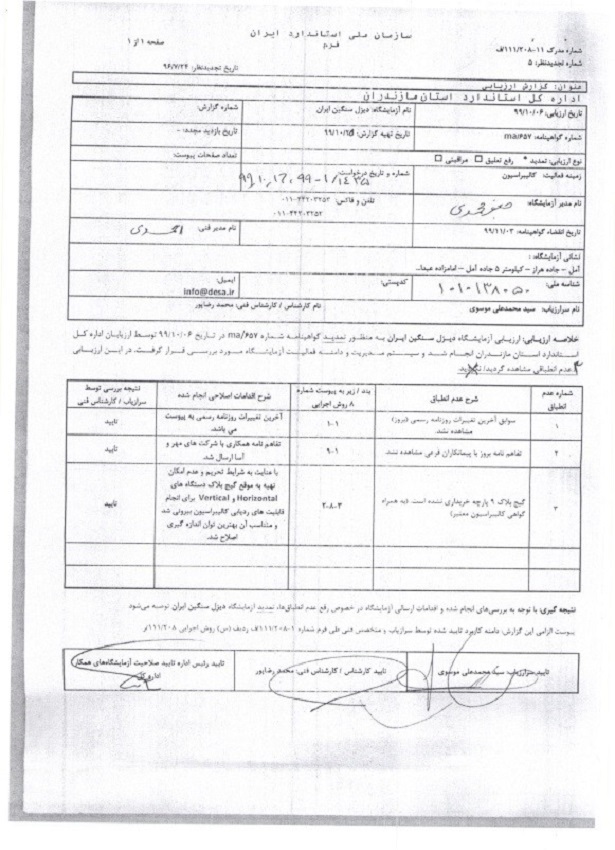 سازمان ملی استاندارد ایران
فرم
صفحه ۱ از ۱
شماره مدرک ۱۱-۱۱۱/۲۰۸/ف
شماره تجدیدنظر: ۵
تاریخ تجدیدنظر: ۹۶/۷/۲۴
عنوان: گزارش ارزیابی
اداره کل استاندارد استان مازندران
تاریخ ارزیابی: ۹۹/۱۰/۰۶
نام آزمایشگاه: دیزل سنگین ایران
شماره گزارش:
شماره گواهینامه: ma/۶۵۷
تاریخ تهیه گزارش: ۹۹/۱۰/
تاریخ بازدید مجدد: -
نوع ارزیابی: تمدید * رفع تعلیق □ مراقبتی □
تعداد صفحات پیوست:
زمینه فعالیت: کالیبراسیون
شماره و تاریخ درخواست:
نام مدیر آزمایشگاه:
تلفن و فاکس: ۰۱۱-۴۴۲۰۳۲۵۳
۰۱۱-۴۴۲۰۳۲۵۲
تاریخ انقضاء گواهینامه: ۹۹/۱۱/۰۳
نام مدیر فنی: احمدی
نشانی آزمایشگاه:
آمل - جاده هراز - کیلومتر ۵ جاده آمل - امامزاده
شناسه ملی: ۱۰۱۰۱۳۸۰۵۰
کدپستی:
ایمیل:
info@desa.ir
نام سرارزیاب: سید محمدعلی موسوی
نام کارشناس / کارشناس فنی: محمد رضاپور
خلاصه ارزیابی: ارزیابی آزمایشگاه دیزل سنگین ایران به منظور تمدید گواهینامه شماره ma/۶۵۷ در تاریخ ۹۹/۱۰/۰۶ توسط ارزیابان اداره کل
استاندارد استان مازندران انجام شد و سیستم مدیریت و دامنه فعالیت آزمایشگاه مورد بررسی قرار گرفت. در این ارزیابی
۳ عدم انطباقی مشاهده گردید
شماره عدم انطباق
شرح عدم انطباق
بند / زیر به پیوست شماره ۸ روش اجرایی
شرح اقدامات اصلاحی انجام شده
نتیجه بررسی توسط سرارزیاب / کارشناس فنی
۱
سوابق آخرین تغییرات روزنامه رسمی (بروز) مشاهده نشد.
۱-۱
آخرین تغییرات روزنامه رسمی به پیوست می باشد.
تایید
۲
تفاهم نامه بروز با پیمانکاران فرعی مشاهده نشد.
۹-۱
تفاهم نامه همکاری با شرکت های مهر و آسا ارسال شد.
تایید
۳
گیج بلاک ۹ پارچه خریداری نشده است. (به همراه گواهی کالیبراسیون معتبر)
۲-۸-۳
با عنایت به شرایط تحریم و عدم امکان تهیه به موقع گیج بلاک دستگاه های
Horizontal و Vertical برای انجام
قابلیت های ردیابی کالیبراسیون بیرونی شد
و متناسب آن بهترین توان اندازه گیری
اصلاح شد.
تایید
نتیجه گیری: با توجه به بررسی‌های انجام شده و اقدامات ارسالی آزمایشگاه در خصوص رفع عدم انطباق‌ها، تمدید آزمایشگاه دیزل سنگین ایران توصیه می‌شود
پیوست الزامی این گزارش: دامنه کاربرد تایید شده توسط سرارزیاب و متخصص فنی طی فرم شماره
تایید سرارزیاب: سید محمدعلی موسوی
تایید کارشناس / کارشناس فنی: محمد رضاپور
تایید رئیس اداره تایید صلاحیت آزمایشگاه‌های همکار
اداره کل